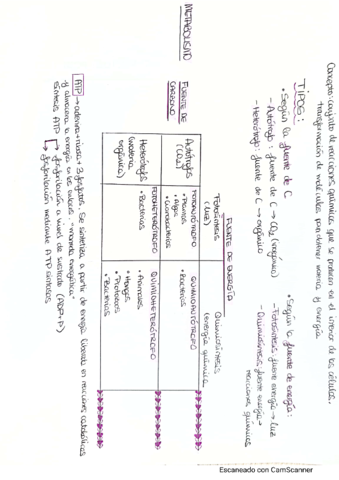 METABOLISMO
Concepto: conjunto de reacciones químicas que se producen en el interior de las células.
transformación de moléculas para obtener materia y energía
TIPOS:
• Según la fuente de C
- Autótrofo: fuente de C → CO₂ (inorgánico)
- Heterótrofo: fuente de C → orgánico
• Según la fuente de energía:
- Fotosíntesis: fuente energía → luz
- Quimiosíntesis: fuente energía →
reacciones químicas
FUENTE DE ENERGÍA
Fotosíntesis
(luz)
Quimiosíntesis
(energía química)
FUENTE DE
CARBONO
Autótrofos
(CO₂)
FOTOAUTÓTROFO
• Plantas
• Algas
• Cianobacterias
QUIMIOAUTÓTROFO
• Bacterias
Heterótrofos
(materia
orgánica)
FOTOHETERÓTROFO
• Bacterias
QUIMIOHETERÓTROFO
• Animales
• Hongos
• Protozoos
• Bacterias
ATP → adenina + ribosa + 3 fosfatos. Se sintetiza a partir de energía liberada en reacciones catabólicas
y almacena la energía en los enlaces - "moneda energética"
Síntesis ATP → fosforilación a nivel de sustrato (ADP + P)
→ fosforilación mediante ATP sintetasa
Escaneado con CamScanner